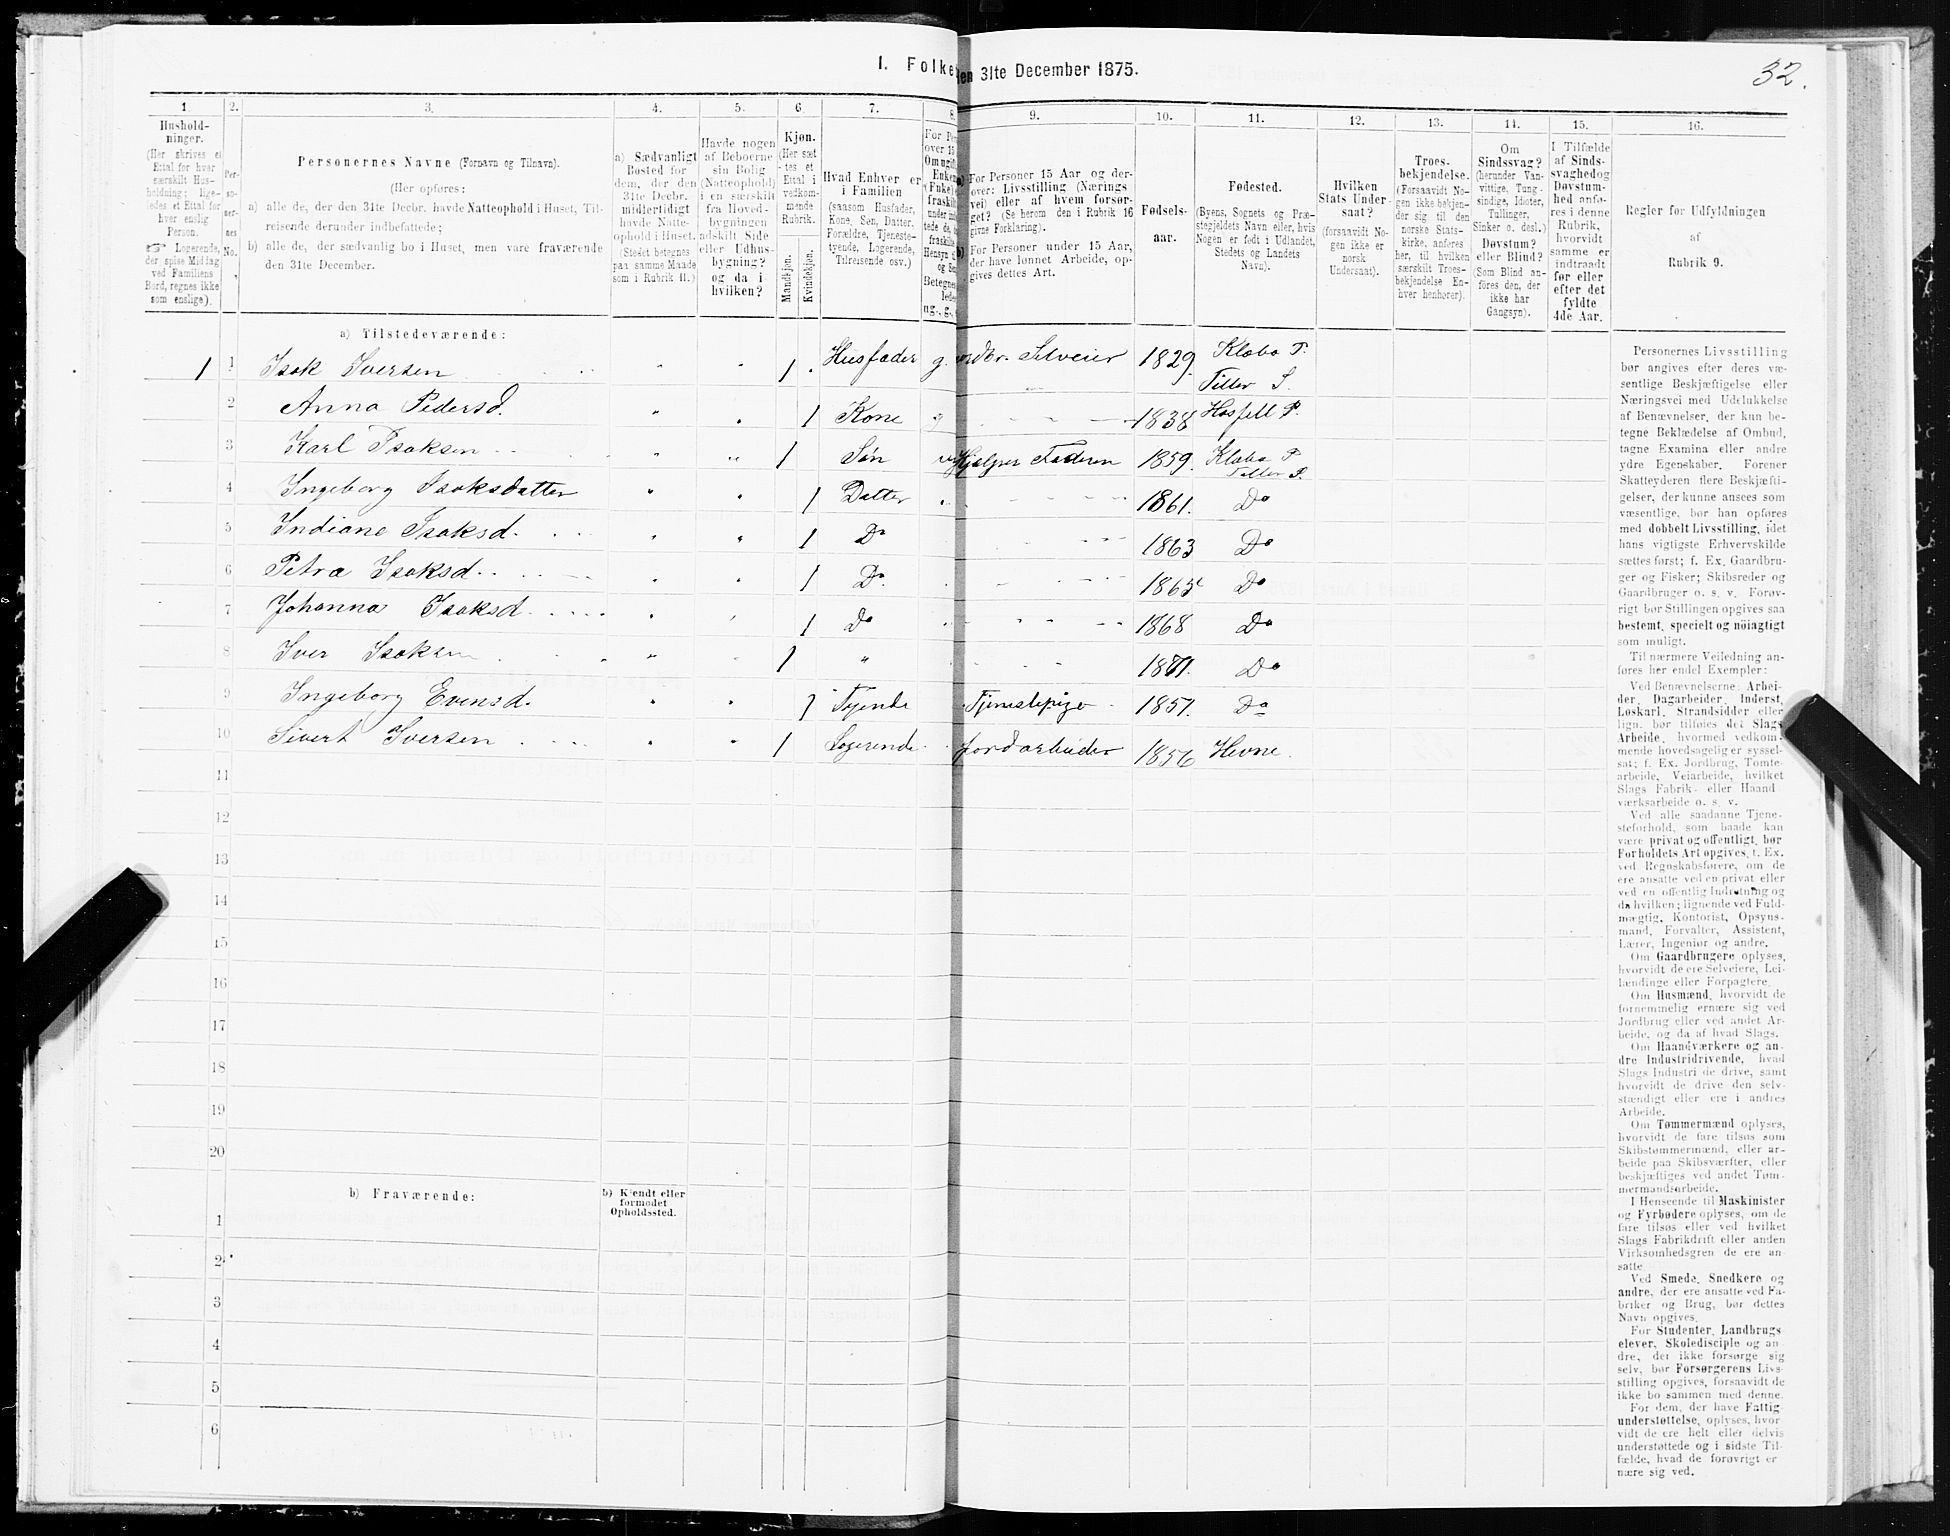 I. Folke
en 31te December 1875.
32.
1.
2.
3.
4.
5.
6.
7.
8.
9.
10.
11.
12.
13.
14.
15.
16.
Hushold-
ninger.
(Her skrives et
Ettal for hver
særskilt Hus-
holdning; lige-
ledes et Ettal for
hver enslig
Person.
☞ Logerende,
der spise Middag
ved Familiens
Bord, regnes ikke
som enslige).
Per-
so-
ner-
nes
No.
Personernes Navne (Fornavn og Tilnavn).
(Her opføres:
a) alle de, der den 31te Decbr. havde Natteophold i Huset, Til-
reisende derunder indbefattede;
b) alle de, der sædvanlig bo i Huset, men vare fraværende
den 31te December.
a) Sædvanligt
Bosted for
dem, der den
31te Decbr.
midlertidigt
havde Natte-
ophold i Huset.
(Stedet betegnes
paa samme Maade
som i Rubrik 11.)
Havde nogen
af Beboerne
sin Bolig
(Natteophold)
i en særskilt
fra Hoved-
bygningen
adskilt Side
eller Udhus-
bygning?
og da i
hvilken?
Kjøn.
(Her sæt
tes et
Ettal i
vedkom-
mende
Rubrik.
Mandkjøn.
Kvindekjøn.
Hvad Enhver er
i Familien
(saasom Husfader,
Kone, Søn, Datter,
Forældre, Tjeneste-
tyende, Logerende,
Tilreisende osv.).
For Pe
over 15
Om ugift
Enken
(Fnke)
fraskil
under ind
tede de,
fraskil
Hensyn
og Se
Betegne
lede
ug., g.,
a) For Personer 15 Aar og der-
over: Livsstilling (Nærings
vei) eller af hvem forsør-
get? (Se herom den i Rubrik 16
givne Forklaring).
b) For Personer under 15 Aar,
der have lønnet Arbeide, op-
gives dettes Art.
Fødsels-
aar.
Fødested.
(Byens, Sognets og Præ-
stegjeldets Navn eller, hvis
Nogen er født i Udlandet,
Stedets og Landets
Navn).
Hvilken
Stats Under-
saat?
(forsaavidt No-
gen ikke er
norsk
Undersaat).
Troes-
bekjendelse.
(Forsaavidt No-
gen ikke bekjen-
der sig til den
norske Stats-
kirke, anføres
her, til hvilken
særskilt Troes-
bekjendelse En-
hver henhører).
Om
Sindssvag?
(herunder Van-
vittige, Tung-
sindige, Idioter,
Tullinger,
Sinker o. desl.)
Døvstum?
eller Blind?
(Som Blind an-
føres den, der
ikke har
Gangsyn).
I Tilfælde
af Sinds-
svaghed og
Døvstum-
hed anfø-
res i denne
Rubrik,
hvorvidt
samme er
indtraadt
før eller
efter det
fyldte
4de Aar.
Regler for Udfyldningen
af
Rubrik 9.
a) Tilstedeværende:
1 1 Isak Iversen " " 1 . Husfader g. Selveier 1829. Klæbo P. Tiller S.
2 Anna Pedersd. " " 1 Kone g 1838 Hosfell P.
3 Karl Isaksen " " 1 Søn Hjælper Faderen 1859. Klæbo P Tiller S.
4 Ingeborg Isaksdatter " " 1 Datter 1861. Do
5 Indiane Isaksd. " " 1 Do 1863 Do
6 Petra Isaksd. " " 1 Do 1865 Do
7 Johanna Isaksd. " " 1 Do 1868 Do
8 Iver Isaksen " " 1 " 1871. Do
9 Ingeborg Evensd. " " 1 Tyende Tjenestepige 1857. Do
10 Sivert Iversen " " 1 Logerende Jordarbeider 1856 Hevne.
11
12
13
14
15
16
17
18
19
20
b) Fraværende:
b) Kjendt eller
formodet
Opholdssted.
1
2
3
4
5
6
Personernes Livsstilling
bør angives efter deres væ-
sentlige Beskjæftigelse eller
Næringsvei med Udelukkelse
af Benævnelser, der kun be-
tegne Beklædelse af Ombud,
tagne Examina eller andre
ydre Egenskaber. Forener
Skatteyderen flere Beskjæfti-
gelser, der kunne ansees som
væsentlige, bør han opføres
med dobbelt Livsstilling, idet
hans vigtigste Erhvervskilde
sættes først; f. Ex. Gaardbru-
ger og Fisker; Skibsreder og
Gaardbruger o. s. v. Forøv-
rigt bør Stillingen opgives saa
bestemt, specielt og nöiagtigt
som muligt.
Til nærmere Veiledning an-
føres her endel Exempler:
Ved Benævnelserne: Arbei-
der, Dagarbeider, Inderst,
Løskarl, Strandsidder eller
lign. bør tilføies det Slags
Arbeide, hvormed vedkom-
mende hovedsagelig er syssel-
sat; f. Ex. Jordbrug, Tomte-
arbeide, Veiarbeide, hvilket
Slags Fabrik- eller Haand-
værksarbeide o. s. v.
Ved alle saadanne Tjene-
steforhold, som baade kan
være privat og offentligt, bør
Forholdets Art opgives, t. Ex.
ved Regnskabsførere, om de
ere ansatte ved en privat eller
ved en offentlig Indretning og
da hvilken; lignende ved Fuld-
mægtig, Kontorist, Opsyns-
mand, Forvalter, Assistent,
Lærer, Ingeniør og andre.
Om Gaardbrugere oplyses,
hvorvidt de ere Selveiere, Lei-
lændinge eller Forpagtere.
Om Husmænd, hvorvidt de
fornemmelig ernære sig ved
Jordbrug eller ved andet Ar-
beide, og da af hvad Slags.
Om Haandværkere og an-
dre Industridrivende, hvad
Slags Industri de drive, samt
hvorvidt de drive den selv-
stændigt eller ere i andres
Arbeide.
Om Tømmermænd oplyses,
hvorvidt de fare tilsøs som
Skibstømmermænd, eller ar-
beide paa Skibsværfter, eller
beskjæftiges ved andet Tøm-
mermandsarbeide.
I Henseende til Maskinister
og Fyrbødere oplyses, om de
fare tilsøs eller ved hvilket
Slags Fabrikdrift eller anden
Virksomhedsgren de ere an-
satte
Ved Smede, Snedkere og
andre, der ere ansatte ved Fa-
briker og Brug, bør dettes
Navn opgives.
For Studenter, Landbrugs-
elever, Skoledisciple og an-
dre, der ikke forsørge sig
selv, bør Forsørgerens Livs-
stilling opgives, forsaavidt de
ikke bo sammen med denne.
For dem, der have Fattig-
understøttelse, oplyses, hvor
vidt de ere helt eller delvis
understøttede og i sidste Til-
fælde, hvad de forøvrigt er
nære sig ved.